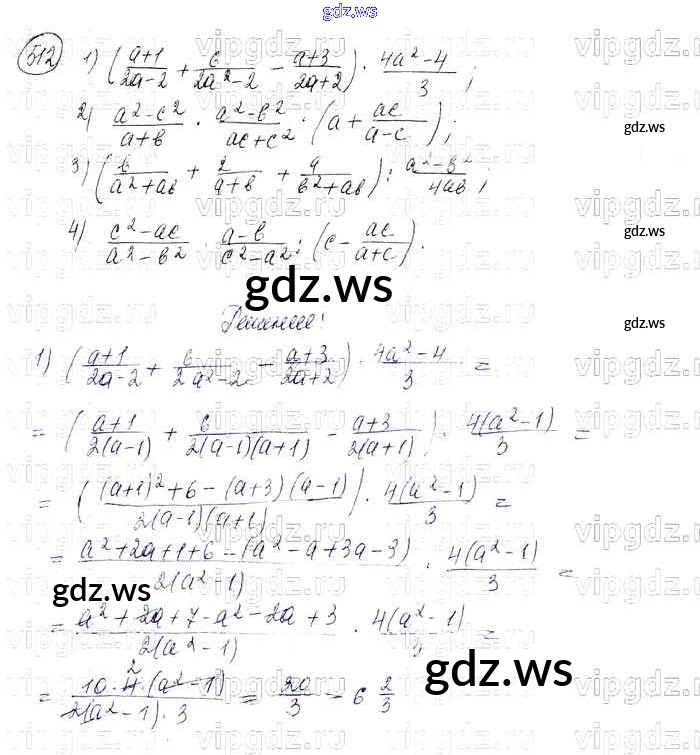 gdz.ws
512 1) ((a+1)/(2a-2) + 6/(2a²-2) - (a+3)/(2a+2)) · (4a²-4)/3;
2) (a²-c²)/(a+b) · (a²-b²)/(ac+c²) · (a + ac/(a-c));
gdz.ws
3) (b/(a²+ab) + 2/(a+b) + a/(b²+ab)) : (a²-b²)/(4ab);
4) (c²-ac)/(a²-b²) · (a-b)/(c²-a²) : (c - ac/(a+c)).
gdz.ws
gdz.ws
Решение!
gdz.ws
1) ((a+1)/(2a-2) + 6/(2a²-2) - (a+3)/(2a+2)) · (4a²-4)/3 =
= ((a+1)/(2(a-1)) + 6/(2(a-1)(a+1)) - (a+3)/(2(a+1))) · 4(a²-1)/3 =
= (((a+1)²+6-(a+3)(a-1))/(2(a-1)(a+1))) · 4(a²-1)/3 =
= (a²+2a+1+6-(a²-a+3a-3))/(2(a²-1)) · 4(a²-1)/3 =
gdz.ws
gdz.ws
= (a²+2a+7-a²-2a+3)/(2(a²-1)) · 4(a²-1)/3 =
gdz.ws
= (10·4·(a²-1))/(2(a²-1)·3) = 20/3 = 6 2/3